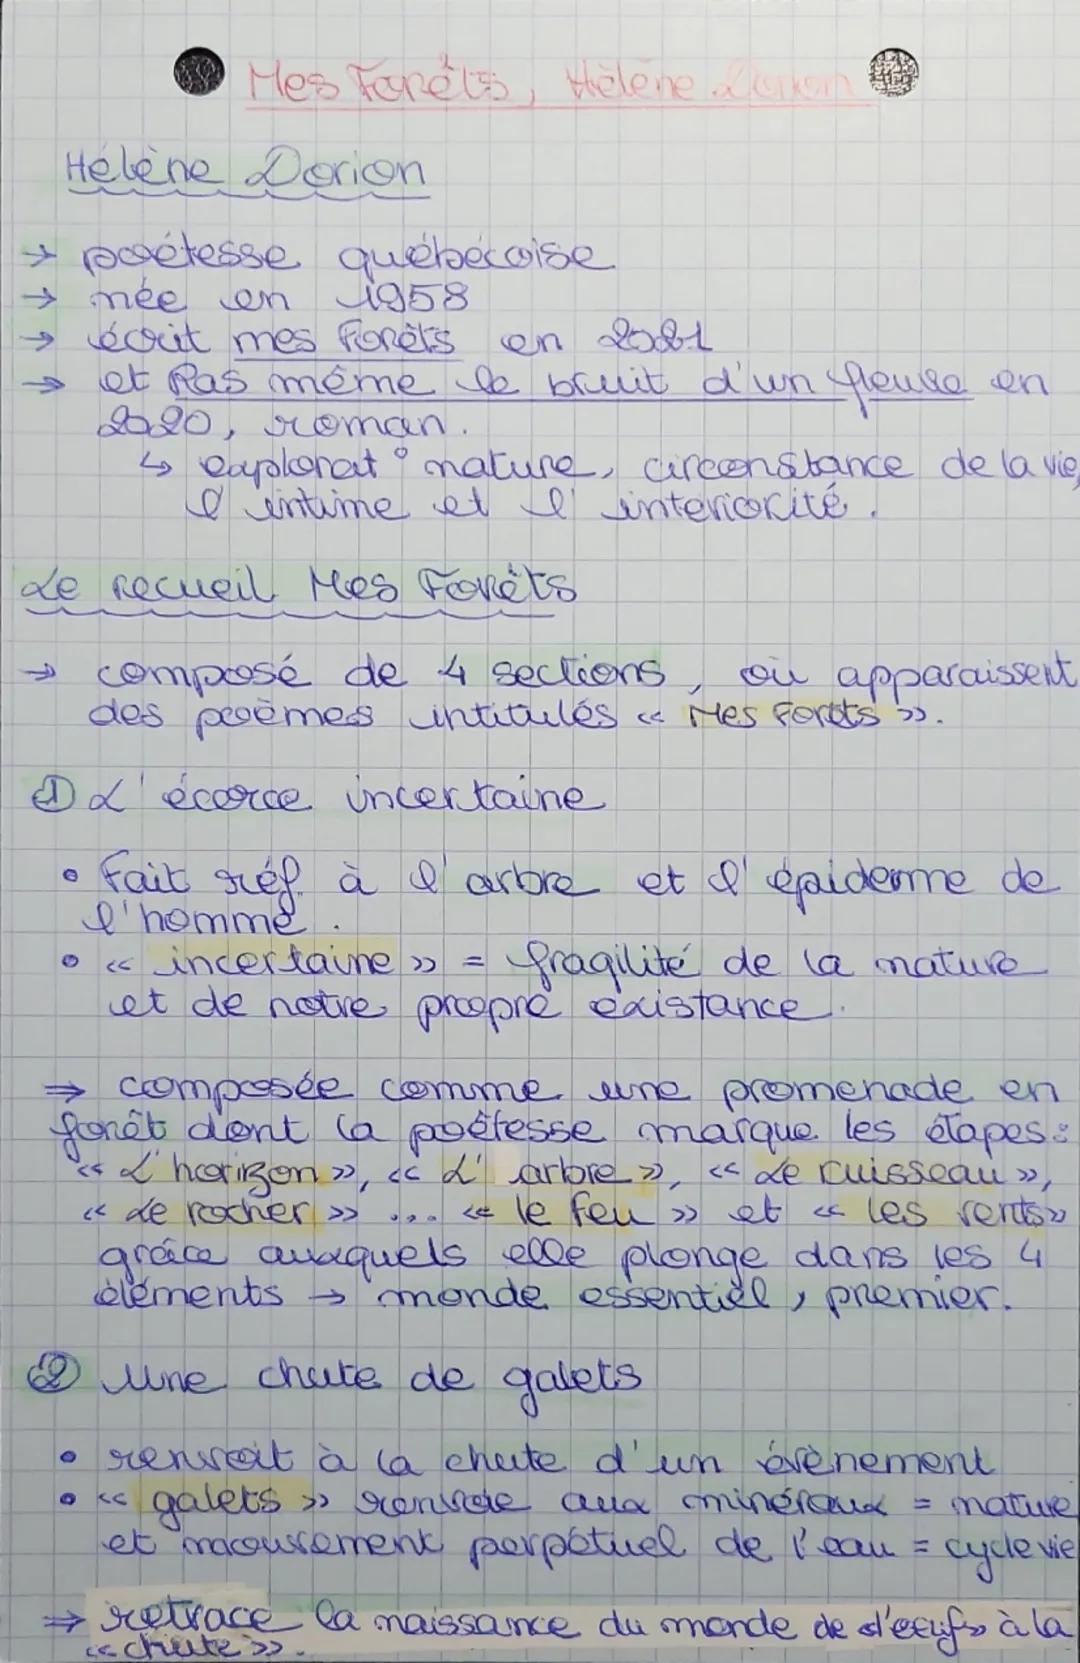 Mes Forêts, Hélène Dorion
Hélène Dorion
→ poétesse québécoise
→ née en 1958
→ écrit mes Forêts en 2021
→ et Pas même le bruit d'un fleuve en
2020, roman.
↳ explorat° nature, circonstance de la vie,
l'intime et l'intériorité.
Le recueil Mes Forêts
→ composé de 4 sections, où apparaissent
des poèmes intitulés « Mes Forêts ».
① L'écorce incertaine
• Fait réf. à l'arbre et l'épiderme de
l'homme.
• « incertaine » = fragilité de la nature
et de notre propre existance.
⇒ composée comme une promenade en
forêt dont la poétesse marque les étapes :
« L'horizon », « L'arbre », « Le ruisseau »,
« Le rocher » ... « le feu » et « les vents »
grâce auxquels elle plonge dans les 4
éléments → monde essentiel, premier.
② Une chute de galets
• renvoit à la chute d'un évènement
• « galets » renvoie aux minéraux = nature
et mouvement perpétuel de l'eau = cycle vie
⇒ retrace la naissance du monde de l'œuf à la
« chute ».